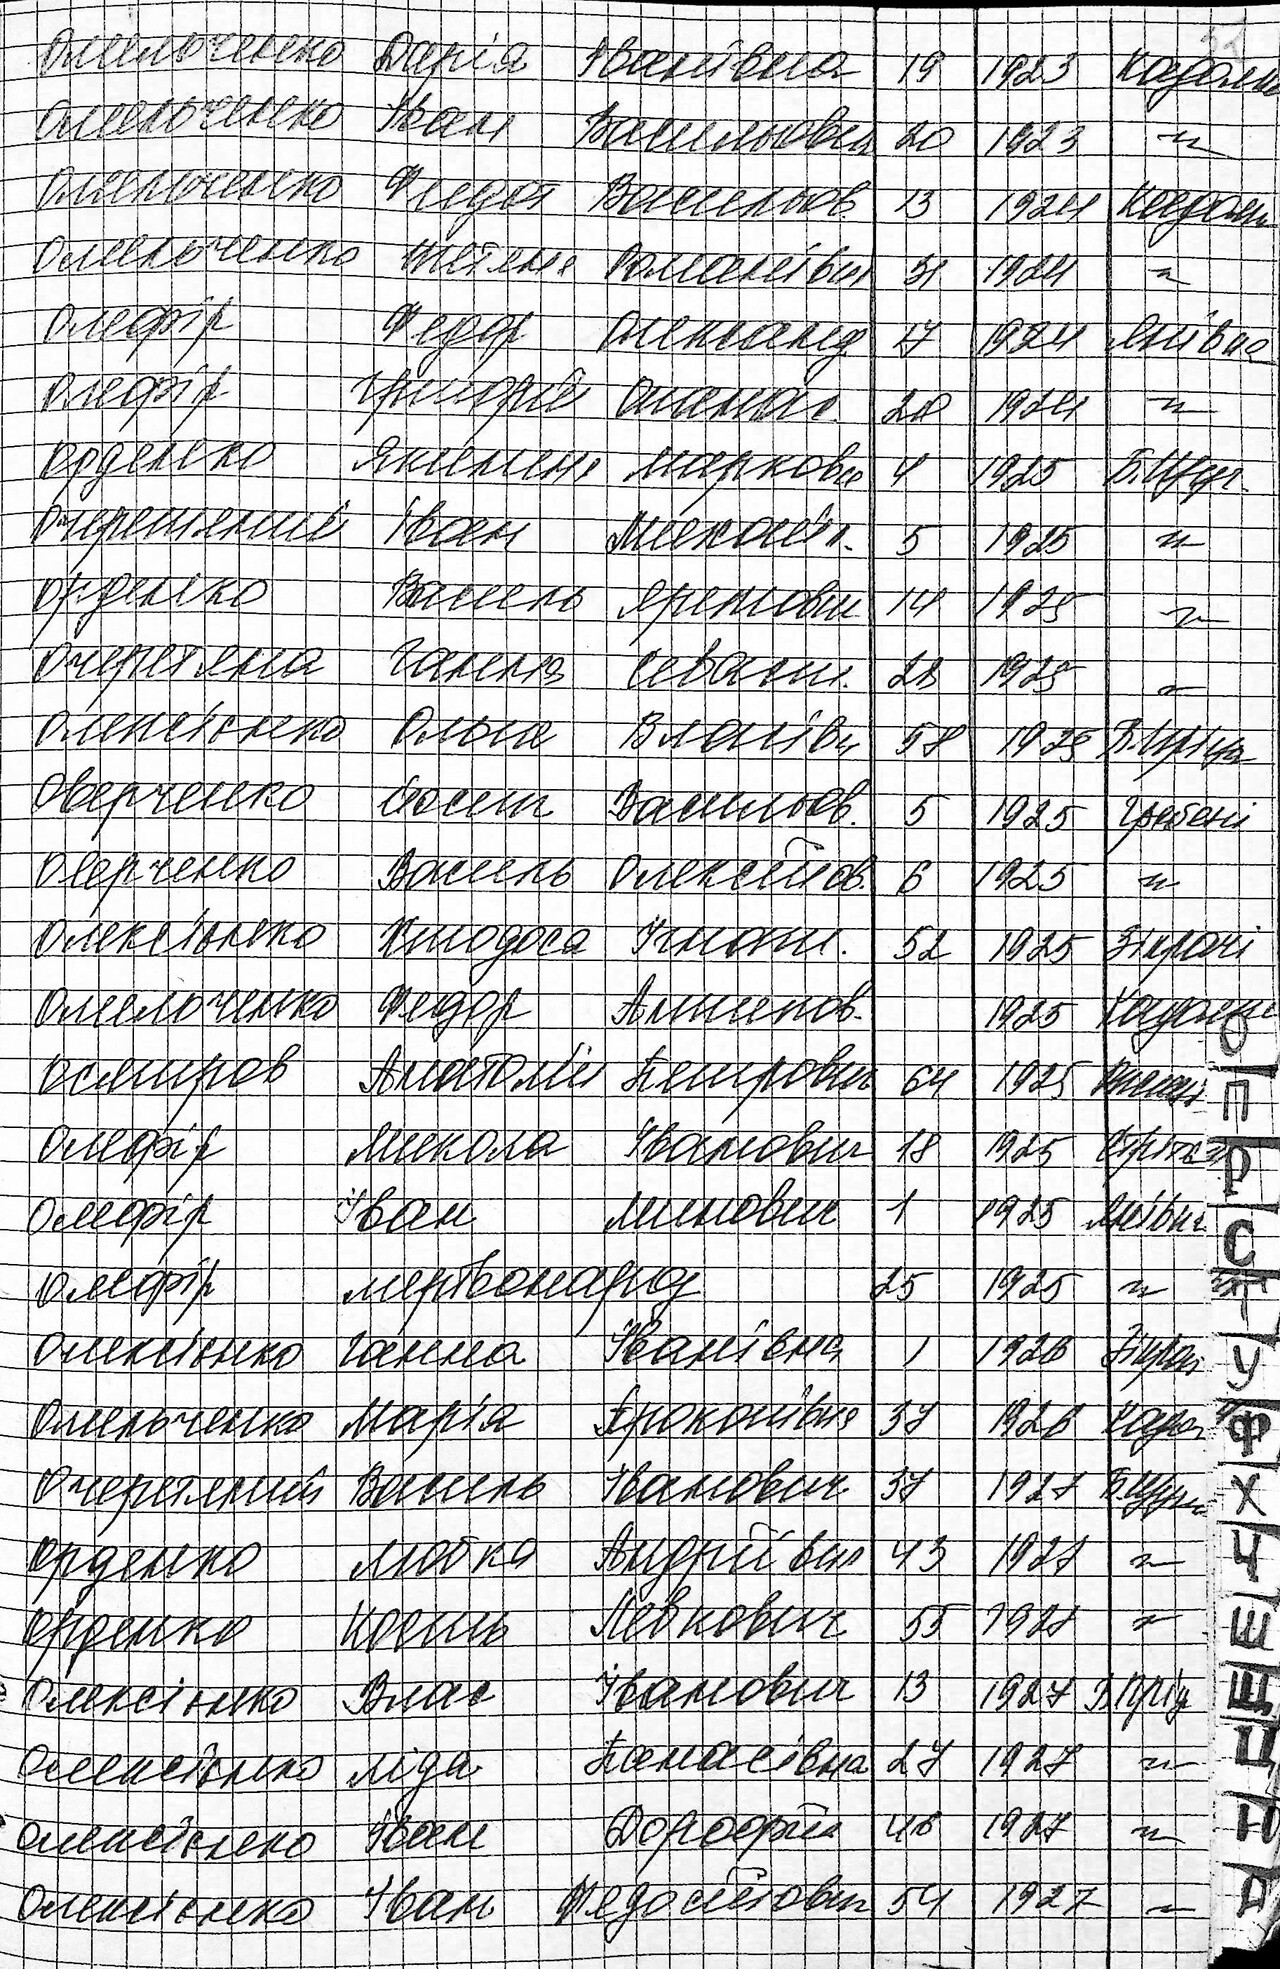 Омельченко Дарія Іванівна 19 1923 Кадомка
Омельченко Іван Васильович 20 1923 "
Омельченко Федот Васильов. 13 1924
Омельченко Тетяна Романівна 31 1924 "
Олефір Федор Олександ. 17 1924 Янівка
Олефір Григорій 20 1924 "
Орденко Якилина Маркова 4 1925 Б.Щуч.
Очеретяний Іван Михайл. 5 1925 "
Орденко Василь Яремович 14 1925 "
Очеретяна Ганна Севаст. 28 1925 "
Олексієнко Ольга Власівн 58 1925
Оверченко Йосип Васильов. 5 1925 Гребені
Оверченко Василь Олексійов. 6 1925 "
Олексієнко Феодоса Ігнат. 52 1925
Омельченко Федор 1925
Анатолій Петрович 64 1925
Олефір Микола Іванович 18 1925
Олефір Іван Минович 1 1925 Янівка
Олефір мертвонарод 25 1925 "
Олексієнко Ганна Іванівна 1 1926
Омельченко Марія Прокопівна 37 1926 Кадом
Очеретяний Василь Іванович 37 1927 Б.Щучи
Орденко Любка Андріївна 43 1927 "
Орденко Кость Левкович 55 1927 "
Олексієнко Влас Іванович 13 1927
Олексієнко Ліда Панасівна 27 1927 "
Олексієнко Іван Дорофій 48 1927 "
Олексієнко Іван Федосійович 54 1927 "
О
П
Р
С
Т
У
Ф
Х
Ч
Ш
Щ
Ц
Ю
Я